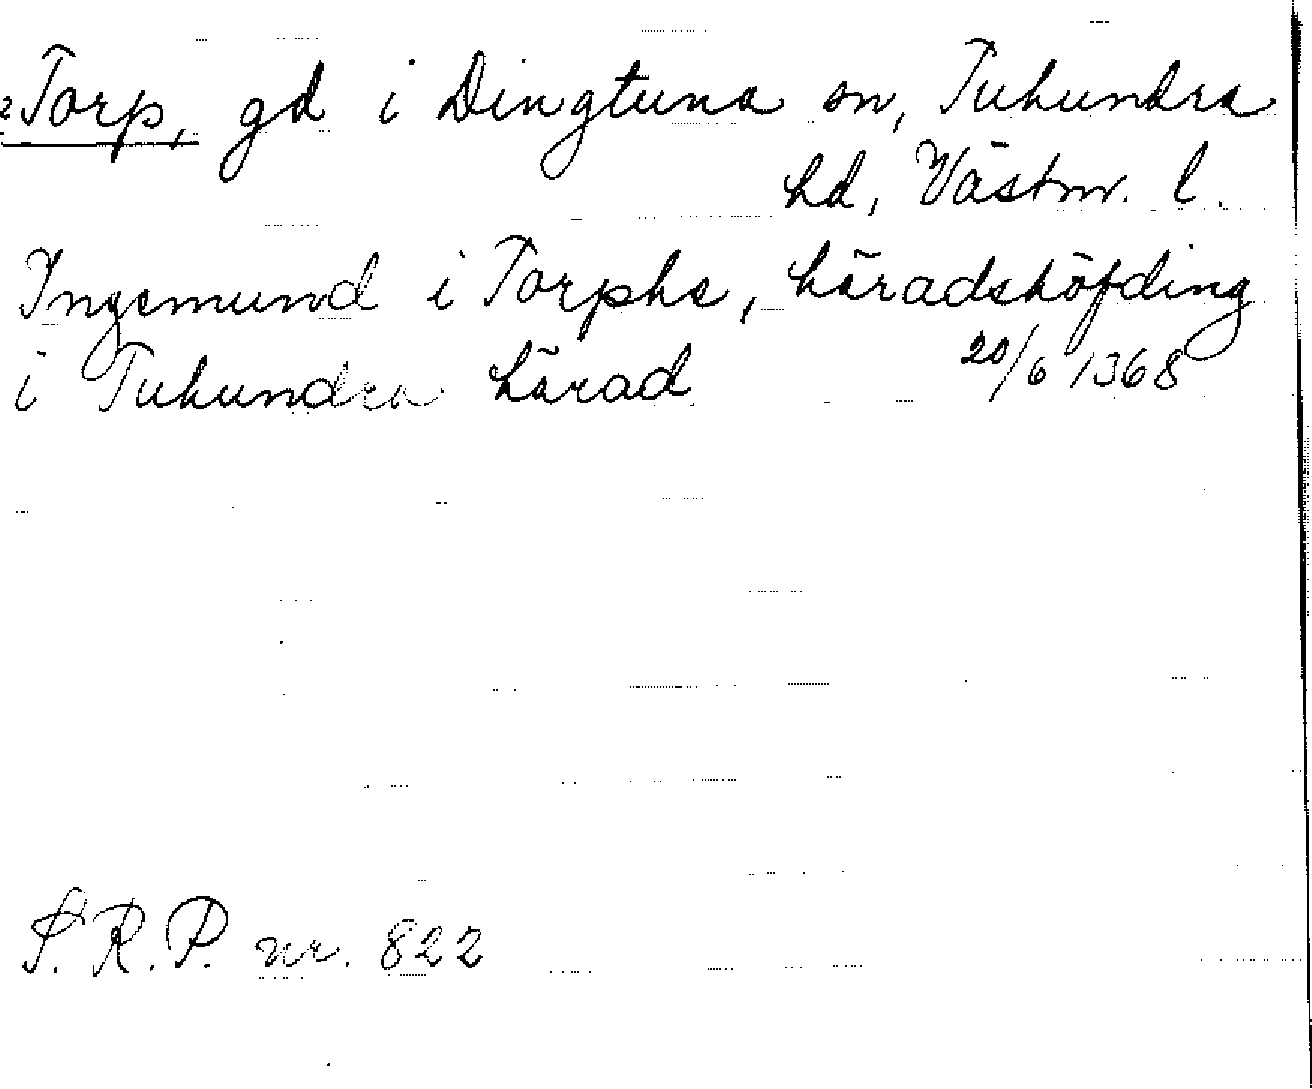 Torp, gd i Dingtuna sn, Tuhundra
hd, Västm. l.
Ingemund i Torphe, häradshöfding
i Tuhundra härad 20/6 1368
S.R.P. nr. 822